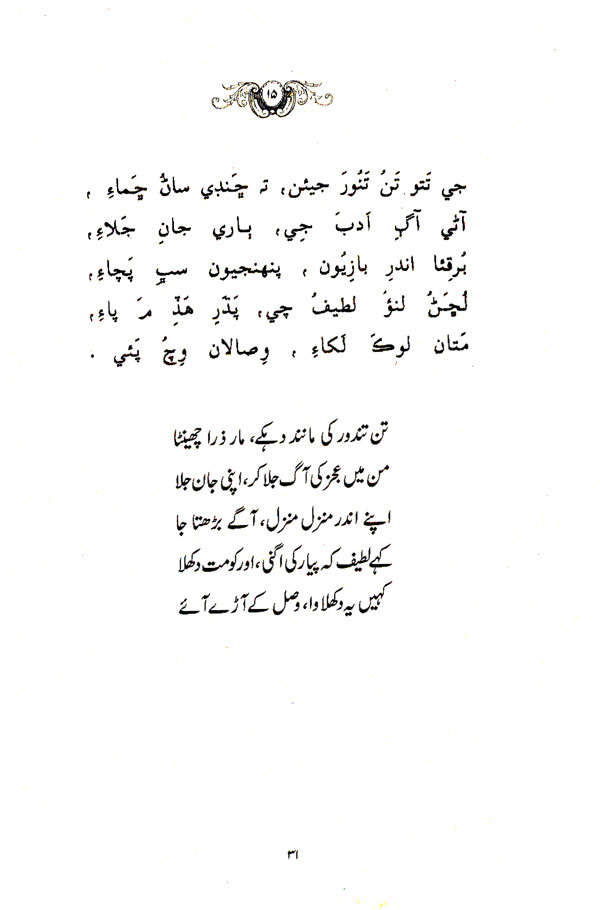 ۱۵
جي تَتو تَنُ تَنُورَ جيئن، تہ ڇَنڊي ساڻُ ڇَماءِ ،
آڻي آڳِ اَدبَ جِي، ٻاري جانِ جَلاءِ،
بُرقِئا اندرِ بازِيُون ، پنھنجيون سڀِ پَچاءِ،
لُڇَڻُ لنؤُ لطيفُ چي، پَڌَرِ ھَڏِ مَ پاءِ،
مَتان لوڪَ لَکاءِ ، وِصالان وِچُ پَئي .
تن تندور کی مانند دہکے، مار ذرا چھینٹا
من میں عجز کی آگ جلا کر، اپنی جان جلا
اپنے اندر منزل منزل، آگے بڑھتا جا
کہے لطیف کہ پیار کی اگنی، اور کو مت دکھلا
کہیں یہ دکھلاوا، وصل کے آڑے آئے
۳۱